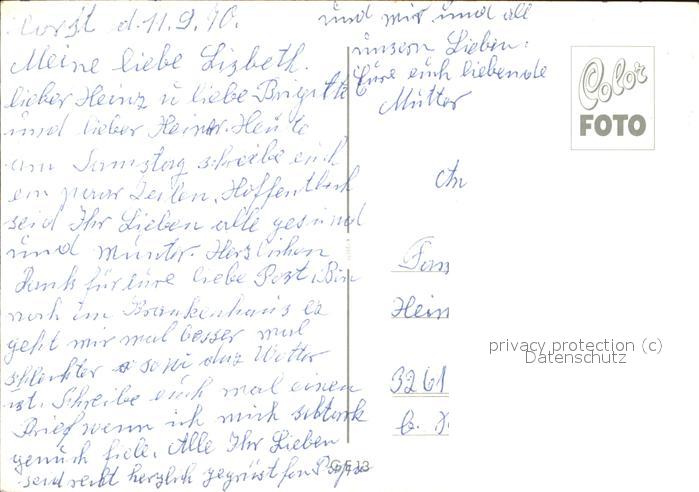 d. 11.9.70.
Meine liebe Lisbeth.
lieber Heinz u liebe Brigitte
und lieber Heinz. Heute
am Samstag schreibe euch
ein paar Zeilen. Hoffentlich
seid Ihr Lieben alle gesund
und munter. Herzlichen
Dank für eure liebe Post. Bin
noch im Krankenhaus es
geht mir mal besser mal
schlechter so wi daz Wetter
ist. Schreibe euch mal einen
Brief wenn ich mich stark
genuch fiele. Alle Ihr Lieben
seid recht herzlich gegrüst fon Papa
und mir und all
unsern Lieben.
Eure euch liebende
Mutter
Color
FOTO
An
Fam
Hein
3261
b.
privacy protection (c)
Datenschutz